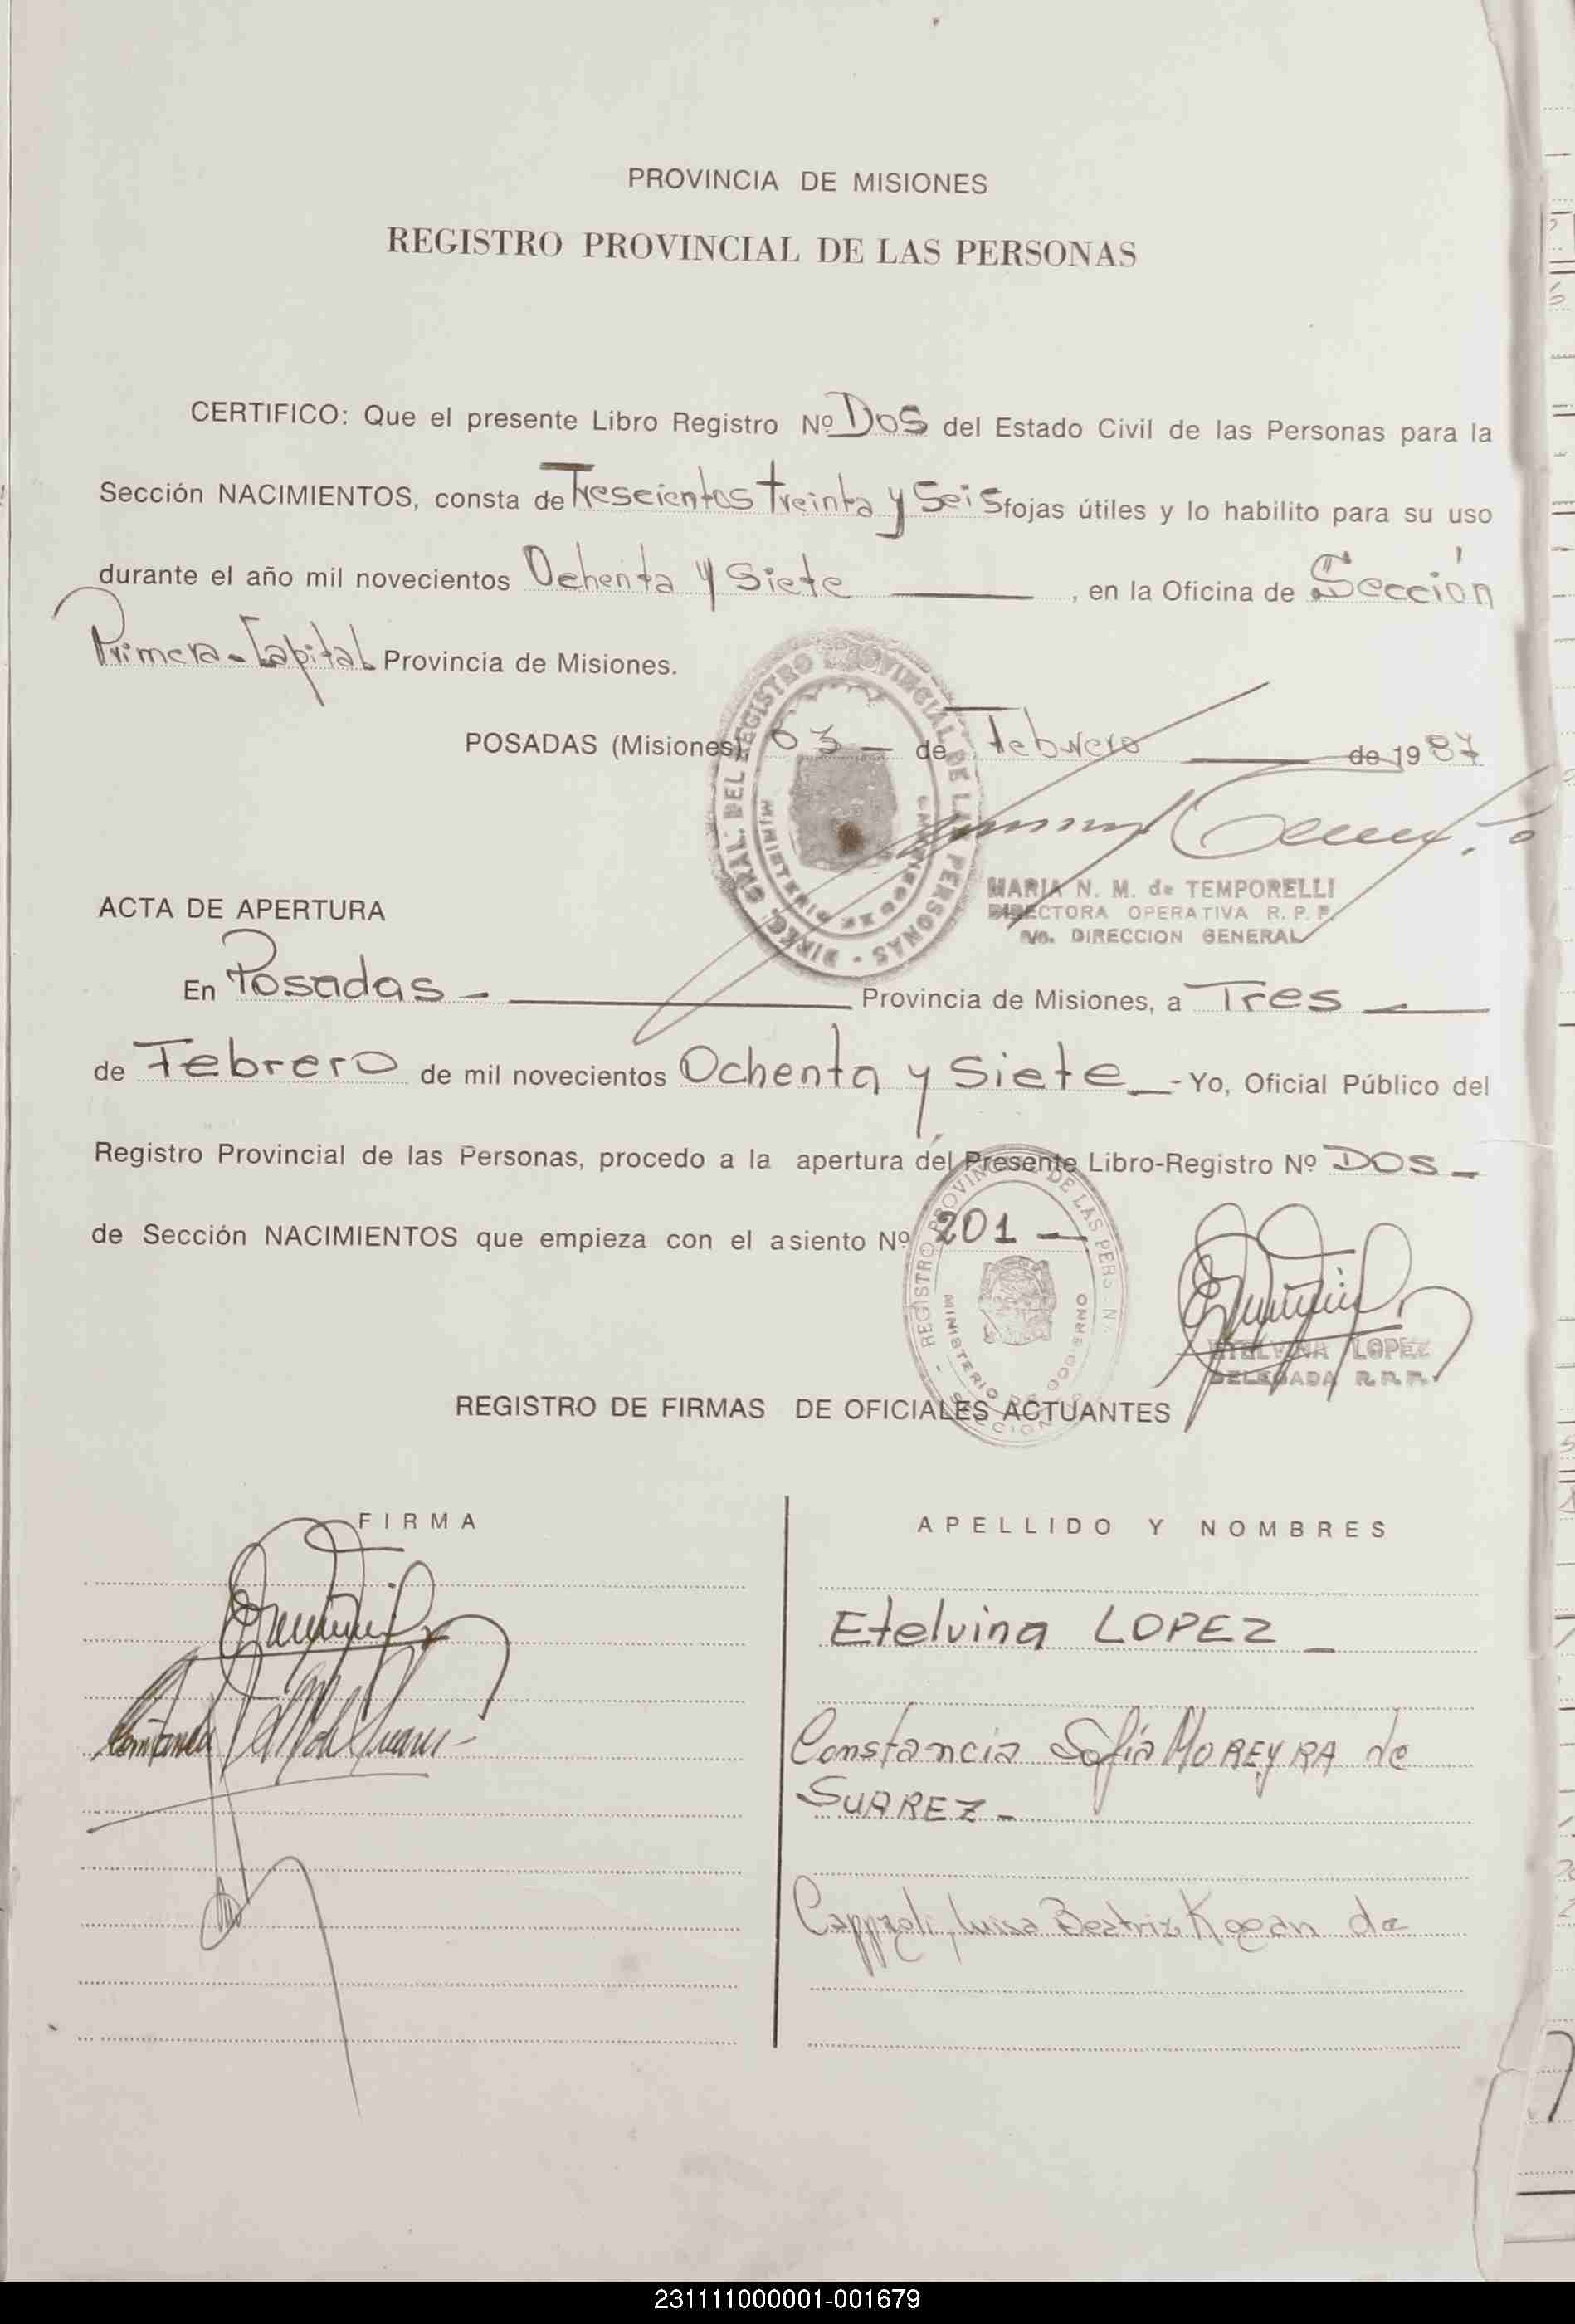 PROVINCIA DE MISIONES
REGISTRO PROVINCIAL DE LAS PERSONAS
CERTIFICO: Que el presente Libro Registro Nº Dos del Estado Civil de las Personas para la
Sección NACIMIENTOS, consta de Trescientos treinta y Seis fojas útiles y lo habilito para su uso
durante el año mil novecientos Ochenta y Siete , en la Oficina de Sección
Primera - Capital Provincia de Misiones.
POSADAS (Misiones) 03 - de Febrero de 1987
DIREC. GRAL. DEL REGISTRO PROVINCIAL DE LAS PERSONAS -
MARIA N. M. de TEMPORELLI
DIRECTORA OPERATIVA R. P. P.
A/c. DIRECCION GENERAL
ACTA DE APERTURA
En Posadas - Provincia de Misiones, a Tres
de Febrero de mil novecientos Ochenta y Siete - Yo, Oficial Público del
Registro Provincial de las Personas, procedo a la apertura del Presente Libro-Registro Nº DOS -
de Sección NACIMIENTOS que empieza con el asiento Nº 201 -
REGISTRO PROVINCIAL DE LAS PERS
MINISTERIO DE GOBIERNO
ETELVINA LOPEZ
DELEGADA R.P.P.
REGISTRO DE FIRMAS DE OFICIALES ACTUANTES
FIRMA
APELLIDO Y NOMBRES
Etelvina LOPEZ -
Constancia Sofía MOREYRA de
SUAREZ -
Luisa Beatriz Kogan de
231111000001-001679